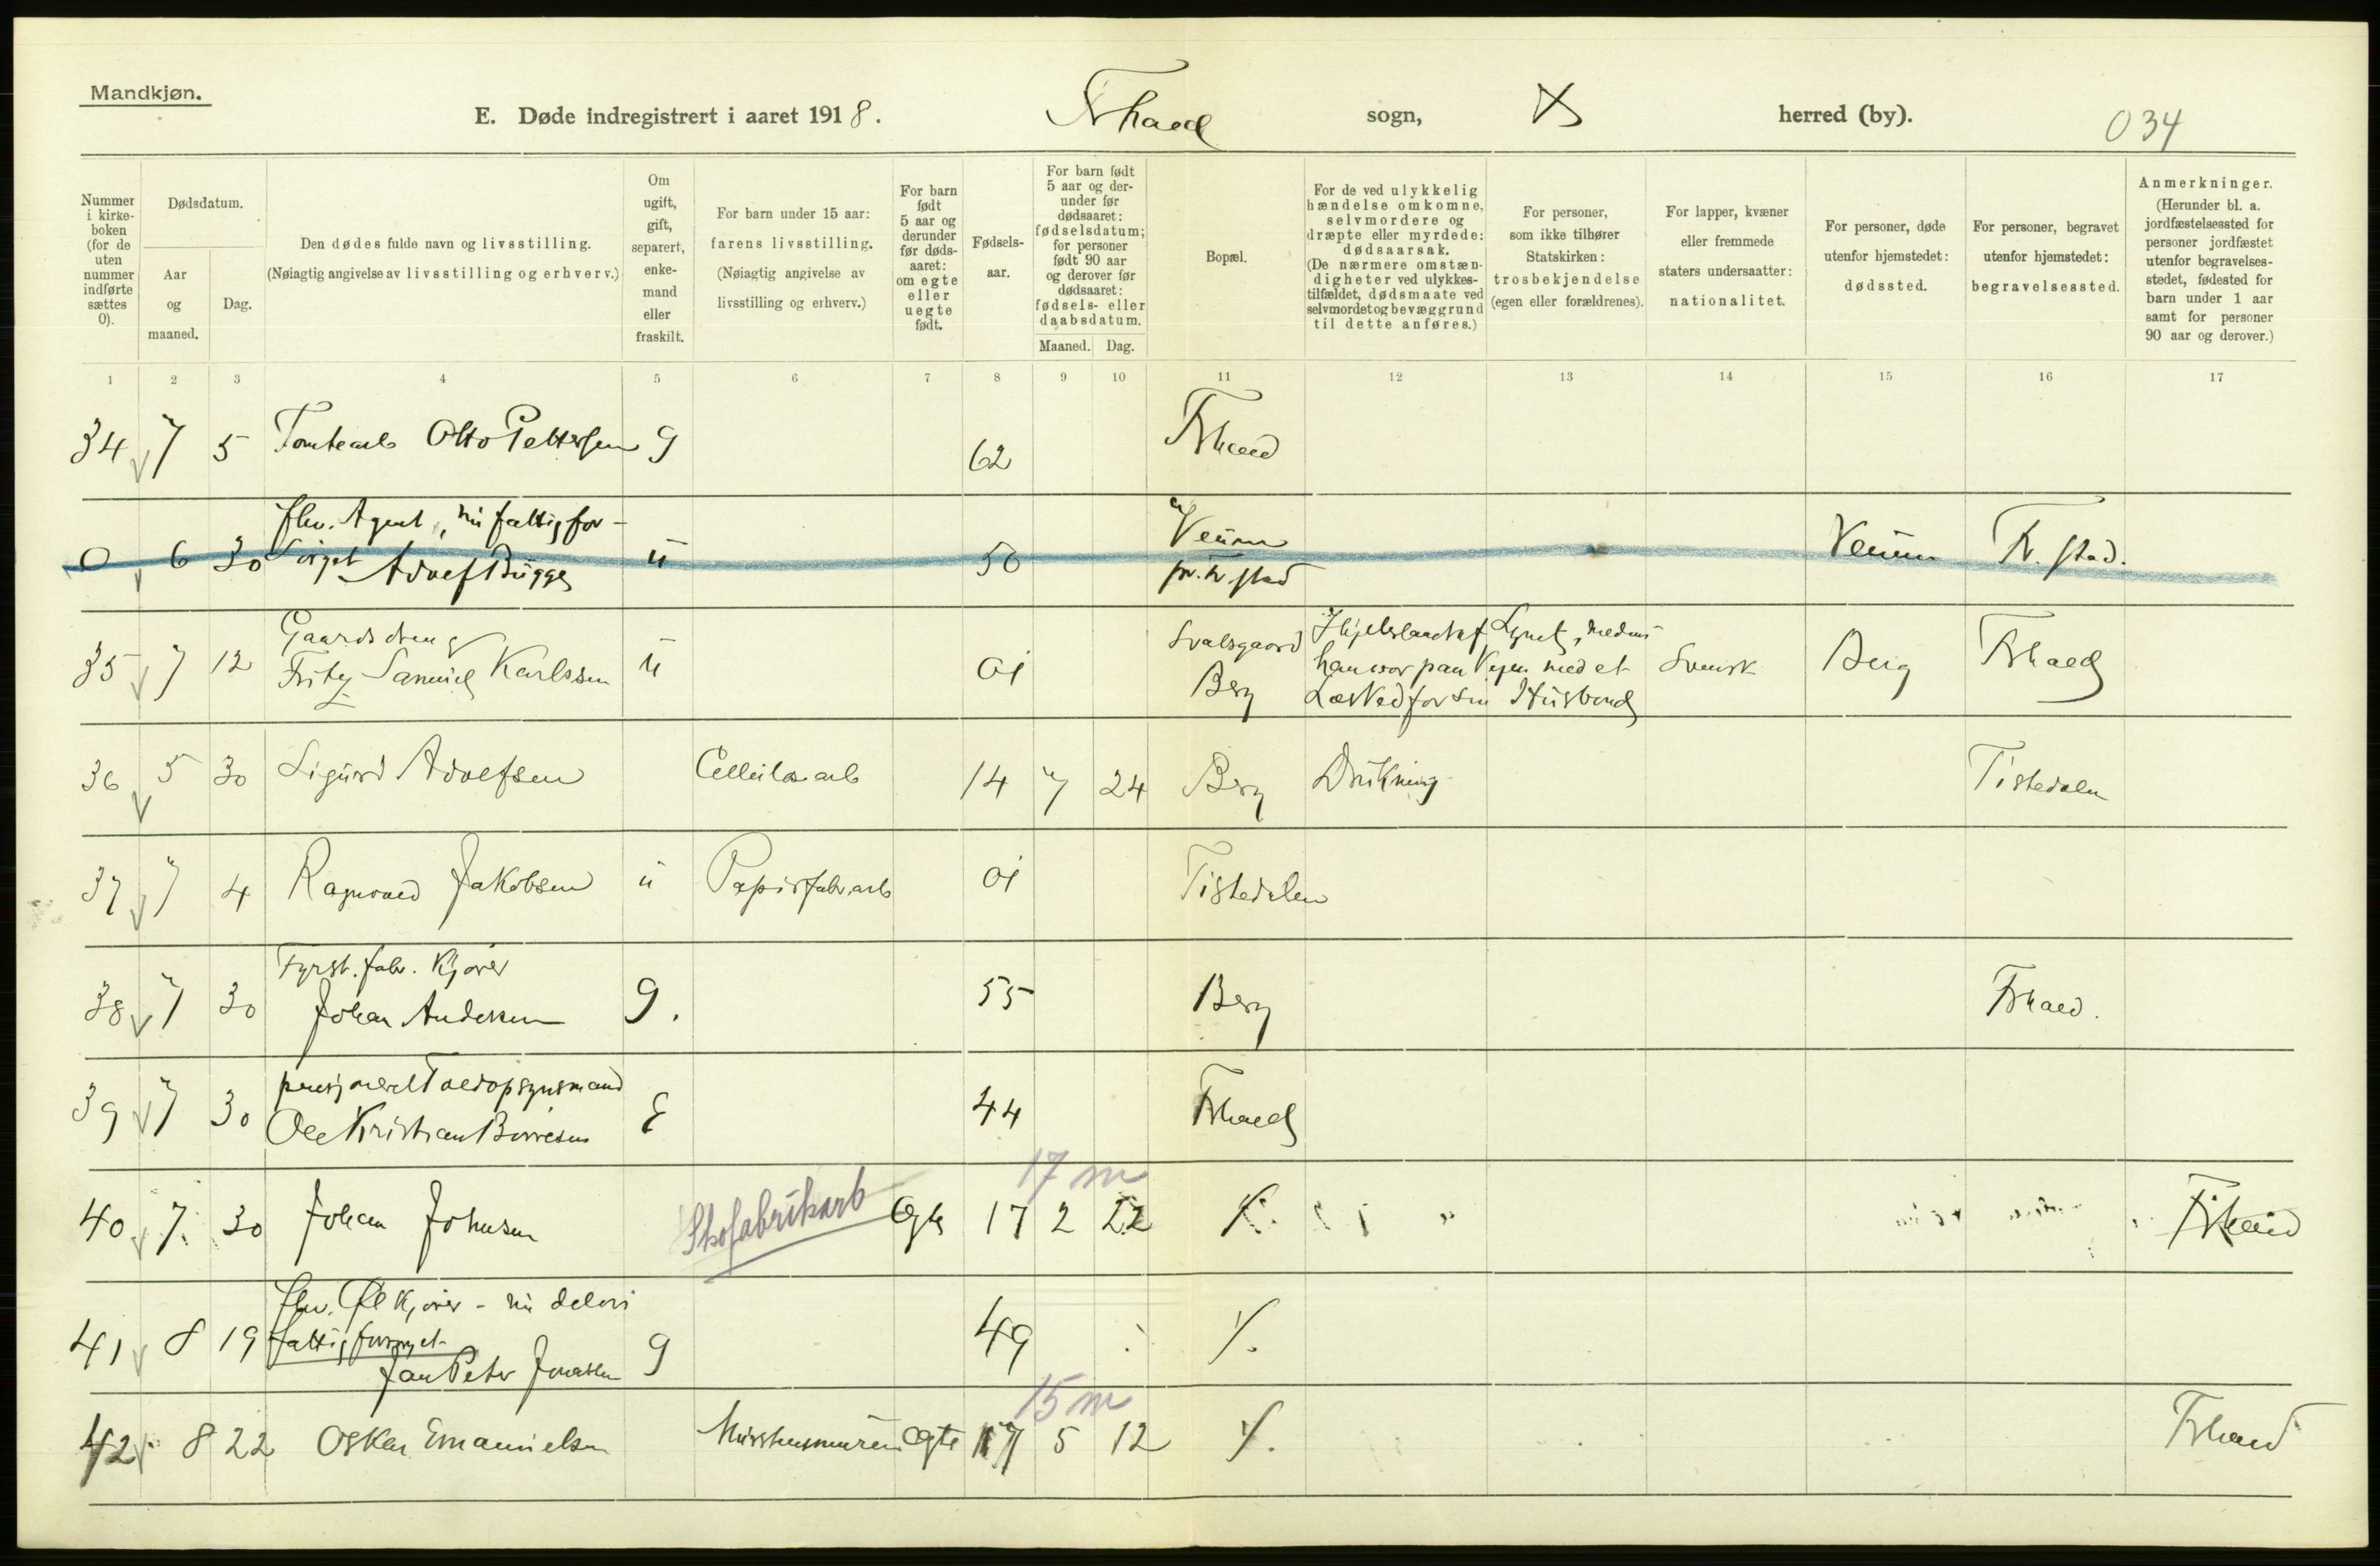 Mandkjøn.
E. Døde indregistrert i aaret 1918.
Frhald
sogn,
herred (by).
034
Nummer i kirke-boken (for de uten nummer indførte sættes 0).
Dødsdatum.
Aar og maaned.
Dag.
Den dødes fulde navn og livsstilling.
(Nøiagtig angivelse av livsstilling og erhverv.)
Om ugift, gift, separert, enke-mand eller fraskilt.
For barn under 15 aar: farens livsstilling.
(Nøiagtig angivelse av livsstilling og erhverv.)
For barn født 5 aar og derunder før døds-aaret: om egte eller uegte født.
Fødsels-aar.
For barn født 5 aar og der-under før dødsaaret: fødselsdatum; for personer født 90 aar og derover før dødsaaret: fødsels- eller daabsdatum.
Maaned. Dag.
Bopæl.
For de ved ulykkelig hændelse omkomne, selvmordere og dræpte eller myrdede: dødsaarsak.
(De nærmere omstæn-digheter ved ulykkes-tilfældet, dødsmaate ved selvmordet og bevæggrund til dette anføres.)
For personer, som ikke tilhører Statskirken: trosbekjendelse (egen eller forældrenes).
For lapper, kvæner eller fremmede staters undersaatter: nationalitet.
For personer, døde utenfor hjemstedet: dødssted.
For personer, begravet utenfor hjemstedet: begravelsessted.
Anmerkninger.
(Herunder bl. a. jordfæstelsessted for personer jordfæstet utenfor begravelses-stedet, fødested for barn under 1 aar samt for personer 90 aar og derover.)
1 2 3 4 5 6 7 8 9 10 11 12 13 14 15 16 17
34 7 5 Tomtearb Otto Pettersen g 62 Frhald
fhv. Agent, nu fattigfor-
0 6 30 sørget Adolf Bugge u 50 Veum pr. Fr.stad Veum Fr.stad.
Gaardsdreng
35 7 12 Fritz Samuel Karlsson u 01 Svalsgaard Berg
Ihjelslaadt af Lynet, medens
han var paa Vejen med et
Læs Ved for sin Husbond
Svensk Berg Frhald
36 5 30 Sigurd Adolfsen Cellulosarb 14 7 24 Berg Drukning Tistedalen
37 7 4 Ragnvald Jakobsen u Papirfabr.arb 01 Tistedalen
Fyrst.fabr. Kjører
38 7 30 Johan Andersen g. 55 Berg Frhald.
pensjoneret Toldopsynsmand
39 7 30 Ole Kristian Børresen E 44 Frhald
17 m
40 7 30 Johan Johnsen Skofabrikarb Egte 17 2 22 Frhald
fhv. Øl Kjører - nu delvis
fattigforsørget
41 8 19 Jan Peter Jonassen g 49
15 m
42 8 22 Oskar Emanuelsen Egte 17 5 12 Frhald